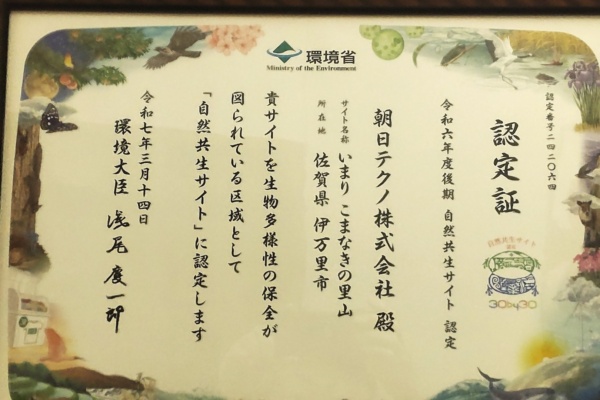 環境省
Ministry of the Environment
認定番号二四二〇六四
認定証
自然共生サイト
30by30
令和六年度後期 自然共生サイト 認定
朝日テクノ株式会社 殿
サイト名称 いまり こまなきの里山
所在地 佐賀県 伊万里市
貴サイトを生物多様性の保全が
図られている区域として
「自然共生サイト」に認定します
令和七年三月十四日
環境大臣 浅尾 慶一郎